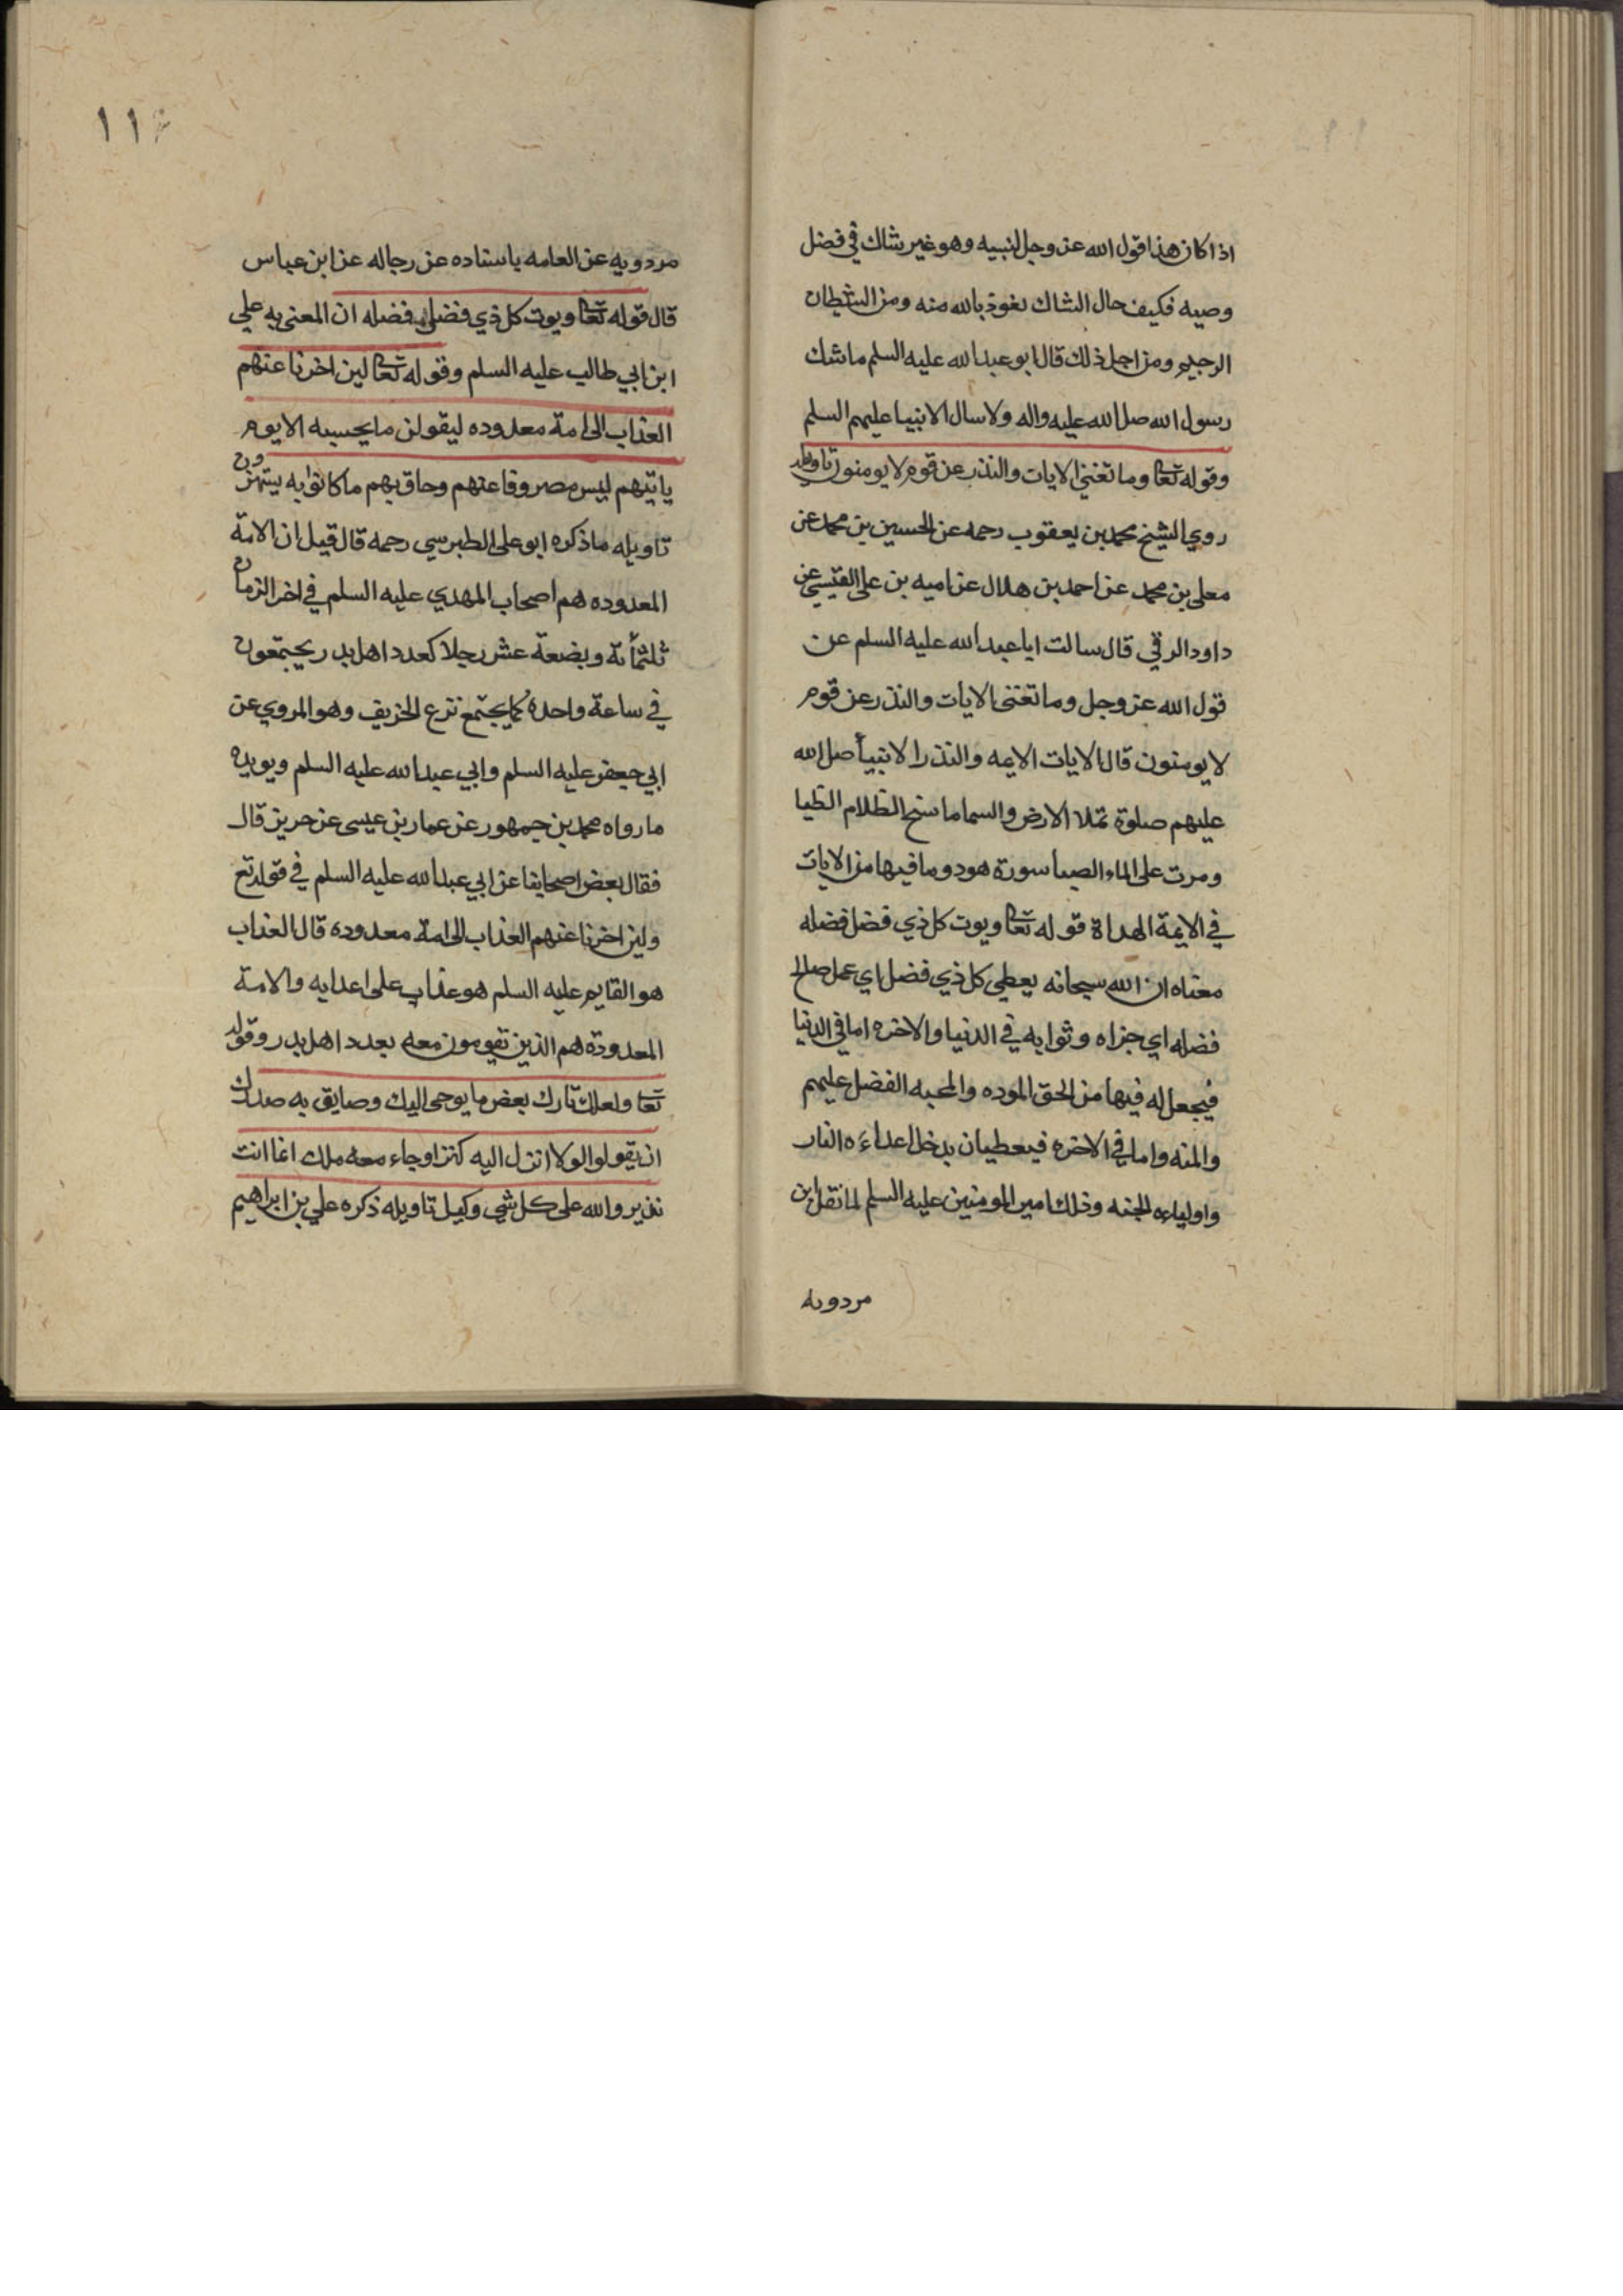 اذا كان هذا قول الله عز وجل لنبيه وهو غير شاك في فضل
وصيه فكيف حال الشاك نعوذ بالله منه ومن الشطان
الرجيم ومن اجل ذلك قال ابو عبد الله عليه السلم ما شك
رسول الله صلى الله عليه واله ولا سال الانبيا عليهم السلم
وقوله تعا وما تغني الايات والنذر عن قوم لا يومنون تاويله
روي الشيخ محمد بن يعقوب رحمه عن الحسين بن محمد عن
معلى بن محمد عن احمد بن هلال عن اميه بن علي القيسي عن
داود الرقي قال سالت ابا عبد الله عليه السلم عن
قول الله عز وجل وما تغنى الايات والنذر عن قوم
لا يومنون قال الايات الايمه والنذر الانبيأ صلى الله
عليهم صلوة تملا الارض والسما ما سنح الظلام الظبا
ومرت على الماء الصبا سورة هود وما فيها من الايات
في الايمة الهداة قوله تعا ويوت كل ذي فضل فضله
معناه ان الله سبحانه يعطي كل ذي فضل اي عمل صالح
فضله اي جزاه وثوابه في الدنيا والاخره اما في الدنيا
فيجعل له فيها من الحق الموده والمحبه الفضل عليهم
والمنه واما في الاخره فيعطيان يدخل اعداءه النار
واولياءه الجنه وذلك امير المومنين عليه السلم لما نقل ابن
مردويه
١١٤
مردويه عن العامه باسناده عن رجاله عن ابن عباس
قال قوله تعا ويوت كل ذي فضل فضله ان المعنى به علي
ابن ابي طالب عليه السلم وقوله تعا لين اخرنا عنهم
العذاب الى امة معدوده ليقولن ما يحبسه الا يوم
ياتيهم ليس مصروفا عنهم وحاق بهم ما كانوا به يستهزون
تاويله ما ذكره ابو علي الطبرسي رحمه قال قيل ان الامة
المعدوده هم اصحاب المهدي عليه السلم في اخر الزمان
ثلثمأئة وبضعة عشر رجلا كعدد اهل بدر يجتمعون
في ساعة واحدة كما يجتمع نزع الخريف وهو المروي عن
ابي جعفر عليه السلم وابي عبد الله عليه السلم ويويده
ما رواه محمد بن جمهور عن عمار بن عيسى عن حريز قال
فقال بعض اصحابنا عن ابي عبد الله عليه السلم في قوله تع
ولين اخرنا عنهم العذاب الى امة معدوده قال العذاب
هو القايم عليه السلم هو عذاب على اعدايه والامة
المعدودة هم الذين تقومون معه بعدد اهل بدر وقوله
تعا ولعلك تارك بعض ما يوحى اليك وضايق به صدرك
ان يقولوا لولا انزل اليه كنز او جاء معه ملك انما انت
نذير والله على كل شي وكيل تاويله ذكره علي بن ابراهيم